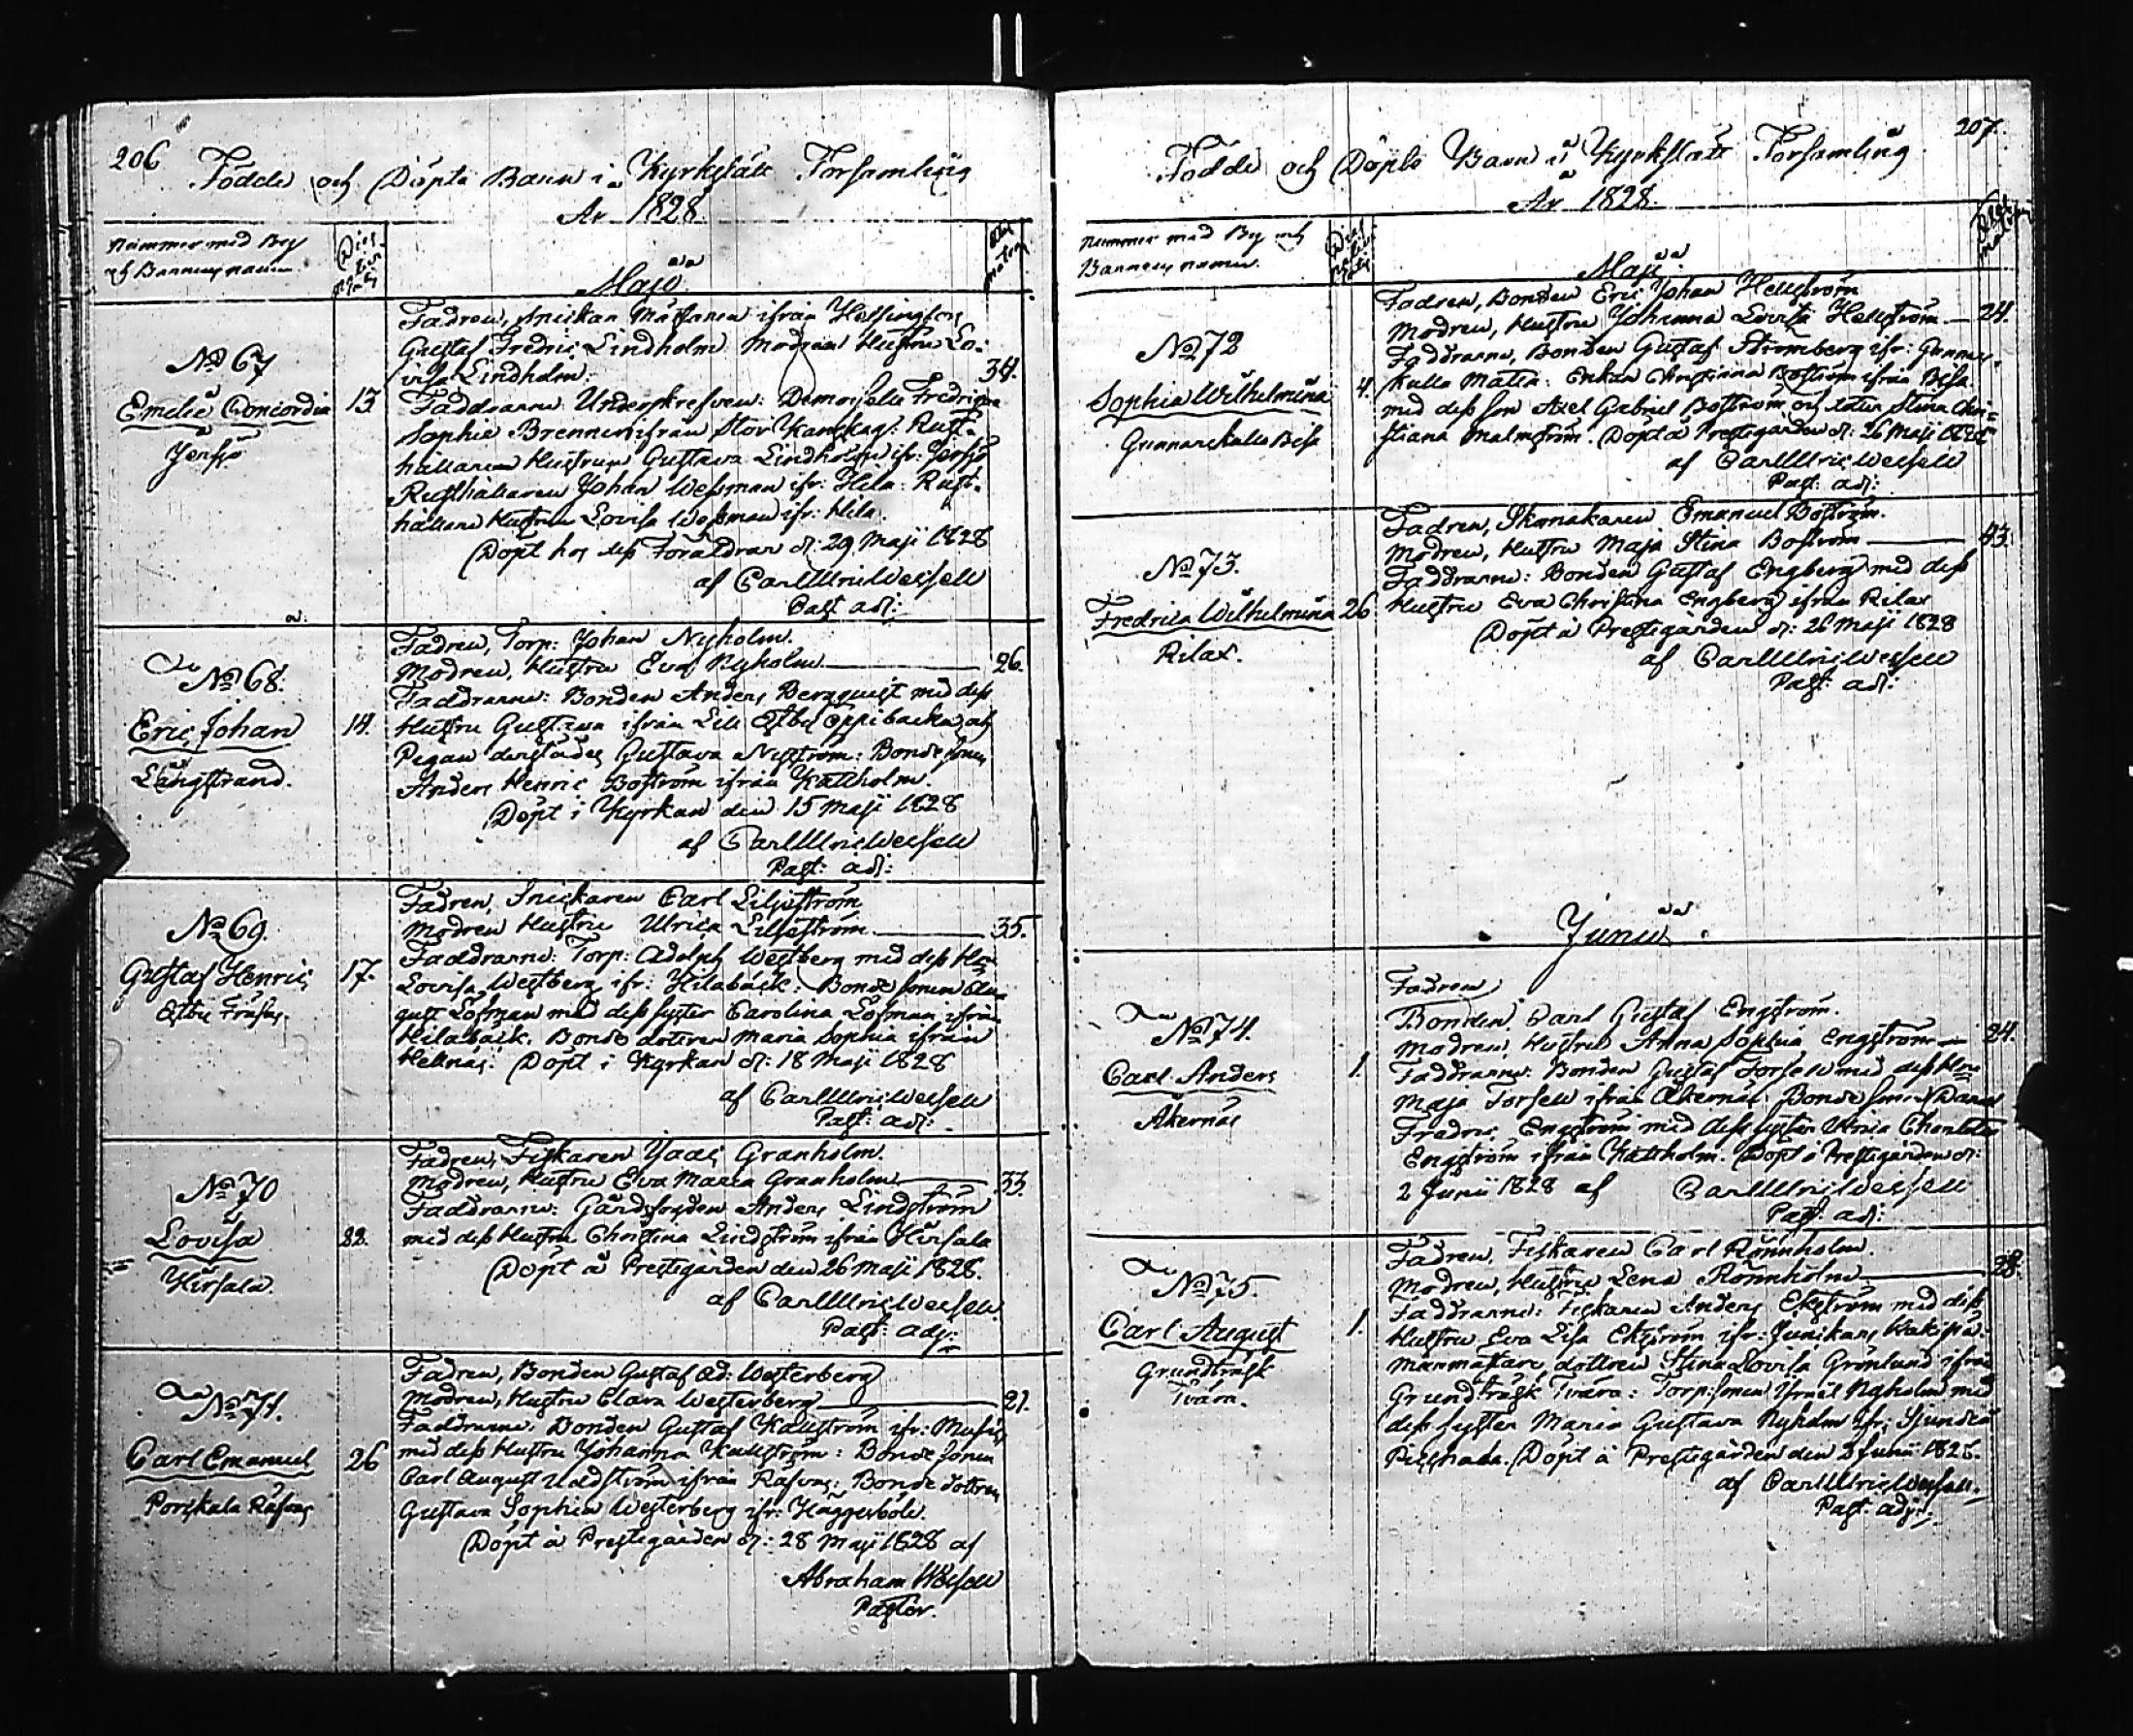 206
Födde och Döpte Barn i Kyrkslätt Församling
År 1828.
Nummer med By
och Barnens namn
Dies
nativi
tatis
Majo
Ætas
matrum
No 67
Emelie Concordia
Jersjö
13
Fadren, Snickar Mästaren ifrån Helsingfors
Gustaf Fredric Lindholm Modren Hustru Lo-
visa Lindholm:
34.
Faddrarne Underskrefven: Demoiselle Fredrique
Sophie Brenner ifrån Stor Kanskog: Rust-
hållaren Hustrun Gustava Lindholm ifr: Jersjö
Rusthållaren Johan Wessman ifr: Hila: Rust-
hållare Hustrun Lovisa Wessman ifr: Hila.
Döpt hos dess Föräldrar d: 29 Maji 1828
af Carl Ulric Wessell
Past: adj:
No 68.
Eric Johan
Långstrand.
14.
Fadren, Torp: Johan Nyholm.
Modren, Hustru Eva Nyholm
26.
Faddrarne: Bonden Anders Bergquist med dess
Hustru Gustava ifrån Lill Estby Oppibacka och
Pigan derstädes Gustava Nyström: Bonde sonen
Anders Henric Boström ifrån Kattholm.
Döpt i Kyrkan den 15 Maji 1828
af Carl Ulric Wessell
Past: adj:
No 69.
Gustaf Henric
Estby Fräsas
17.
Fadren, Snickaren Carl Liljeström
Modren Hustru Ulrica Liljeström
35.
Faddrarne: Torp: Adolph Westberg med dess Hu
Lovisa Westberg ifr: Hilabäck. Bonde sonen Au-
gust Löfman med dess syster Carolina Löfman ifrån
Hilabäck. Bonde dotteren Maria Sophia ifrån
Hellnäs: Döpt i Kyrkan d: 18 Maji 1828
af Carl Ulric Wessell
Past: adj:
No 70
Lovisa
Hirsala.
22.
Fadren, Fiskaren Isac Granholm.
Modren, Hustru Eva Maria Granholm
33.
Faddrarne: Gårdsfogden Anders Lindström
med dess Hustru Christina Lindström ifrån Hirsala
Döpt å Prestegården den 26 Maji 1828.
af Carl Ulric Wessell.
Past: adj:
No 71.
Carl Emanuel
Porskala Räfsnäs
26
Fadren, Bonden Gustaf Ad: Westerberg
Modren, Hustru Clara Westerberg
21.
Faddrarne: Bonden Gustaf Kallström ifr:
med dess Hustru Johanna Kallström: Bonde sonen
Carl August ifrån Räfsnäs: Bonde dottren
Gustava Sophia Westerberg ifr: Haggesböle.
Döpt å Prestegården d: 28 Maji 1828 af
Abraham Wessell
Pastor.
207.
Födde och Döpte Barn i Kyrkslätt Församling
År 1828.
Nummer med By och
Barnens namn.
Dies
nativi
tatis
Maji
Ætas
matrum
No 72
Sophia Wilhelmina
Gunnarskulla Bisa
4.
Fadren, Bonden Eric Johan Hellström
Modren, Hustru Johanna Lovisa Hellström
24.
Faddrarne, Bonden Gustaf Strömberg ifr: Gunnars-
kulla Matts: Enkan Christina Boström ifrån Bisa
med dess son Axel Gabriel Boström och dotter Stina Chri-
stiana Malmström. Döpt å Prestegården d: 26 Maji 1828
af Carl Ulric Wessell
Past: adj:
No 73.
Fredrica Wilhelmina
Rilax.
26
Fadren, Skomakaren Emanuel Boström.
Modren, Hustru Maja Stina Boström
43.
Faddrarne: Bonden Gustaf Engberg med dess
Hustru Eva Christina Engberg ifrån Rilax
Döpt å Prestegården d: 26 Maji 1828
af Carl Ulric Wessell
Past: adj:
Junii
No 74.
Carl Anders
Åkernäs
1.
Fadren
Bonden Carl Gustaf Engström.
Modren, Hustru Anna Sophia Engström
24.
Faddrarne: Bonden Gustaf Forsell med dess Hu
Maja Forsell ifrån Åkernäs: Bonde sonen Daniel
Fredric Engström med dess syster Ulrica Charlotta
Engström ifrån Kattholm. Döpt å Prestegården d:
2 Junii 1828 af Carl Ulric Wessell
Past: adj:
No 75.
Carl August
Grundträsk
Tvära.
1.
Fadren, Fiskaren Carl Rönnholm.
Modren, Hustru Lena Rönnholm
38.
Faddrarne: Fiskaren Anders Ekström med dess
Hustru Eva Lisa Ekström ifr: Junikans
dottren Stina Lovisa Grönlund ifrån
Grundträsk Tvära: Torp: sonen Israel Nyholm med
dess syster Maria Gustava Nyholm ifr: Sjundeå
Döpt å Prestegården den 3 Junii 1828.
af Carl Ulric Wessell.
Past: adj: